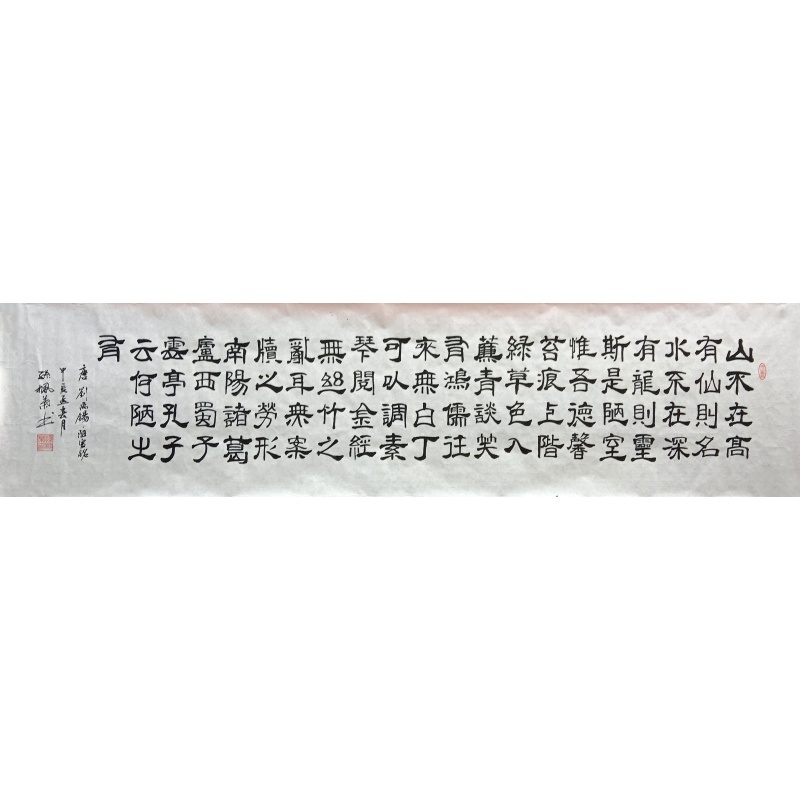 山不在高
有仙則名
水不在深
有龍則靈
斯是陋室
惟吾德馨
苔痕上階
綠草色入
簾青談笑
有鴻儒往
來無白丁
可以調素
琴閱金經
無絲竹之
亂耳無案
牘之勞形
南陽諸葛
廬西蜀子
雲亭孔子
云何陋之
有
唐劉禹錫陋室銘